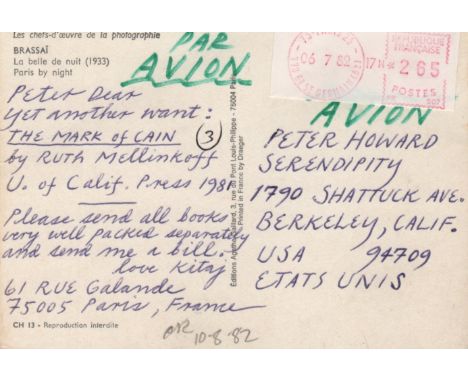 Les chefs-d'œuvre de la photographie
BRASSAÏ
La belle de nuit (1933)
Paris by night
PAR
AVION
Peter Dear
yet another want:
THE MARK OF CAIN
3
by RUTH MELLINKOFF
U. of Calif. Press 1981
Please send all books
very well packed separately
and send me a bill.
love Kitaj
61 RUE Galande
75005 Paris, France
CH 13 - Reproduction interdite
10-8-82
Editions 3, rue du Pont Louis-Philippe - 75004 Paris
Printed in France by Draeger
06 7 82 17H
RÉPUBLIQUE
FRANÇAISE
265
POSTES
AVION
PETER HOWARD
SERENDIPITY
1790 SHATTUCK AVE.
BERKELEY, CALIF.
USA 94709
ETATS UNIS